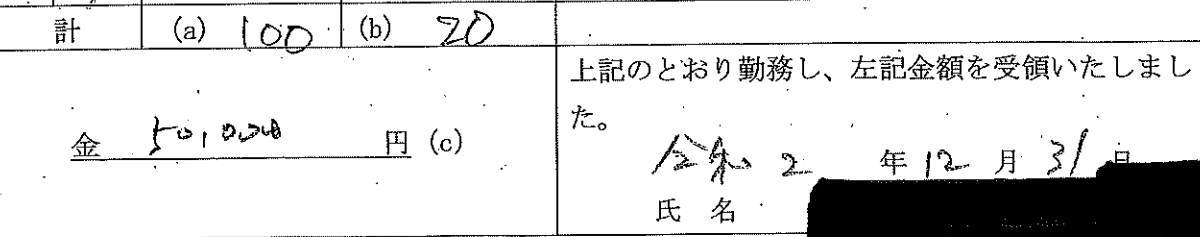 計 (a) 100 (b) 20
金 50,000 円 (c)
上記のとおり勤務し、左記金額を受領いたしまし
た。
令和 2 年 12 月 31 日
氏 名